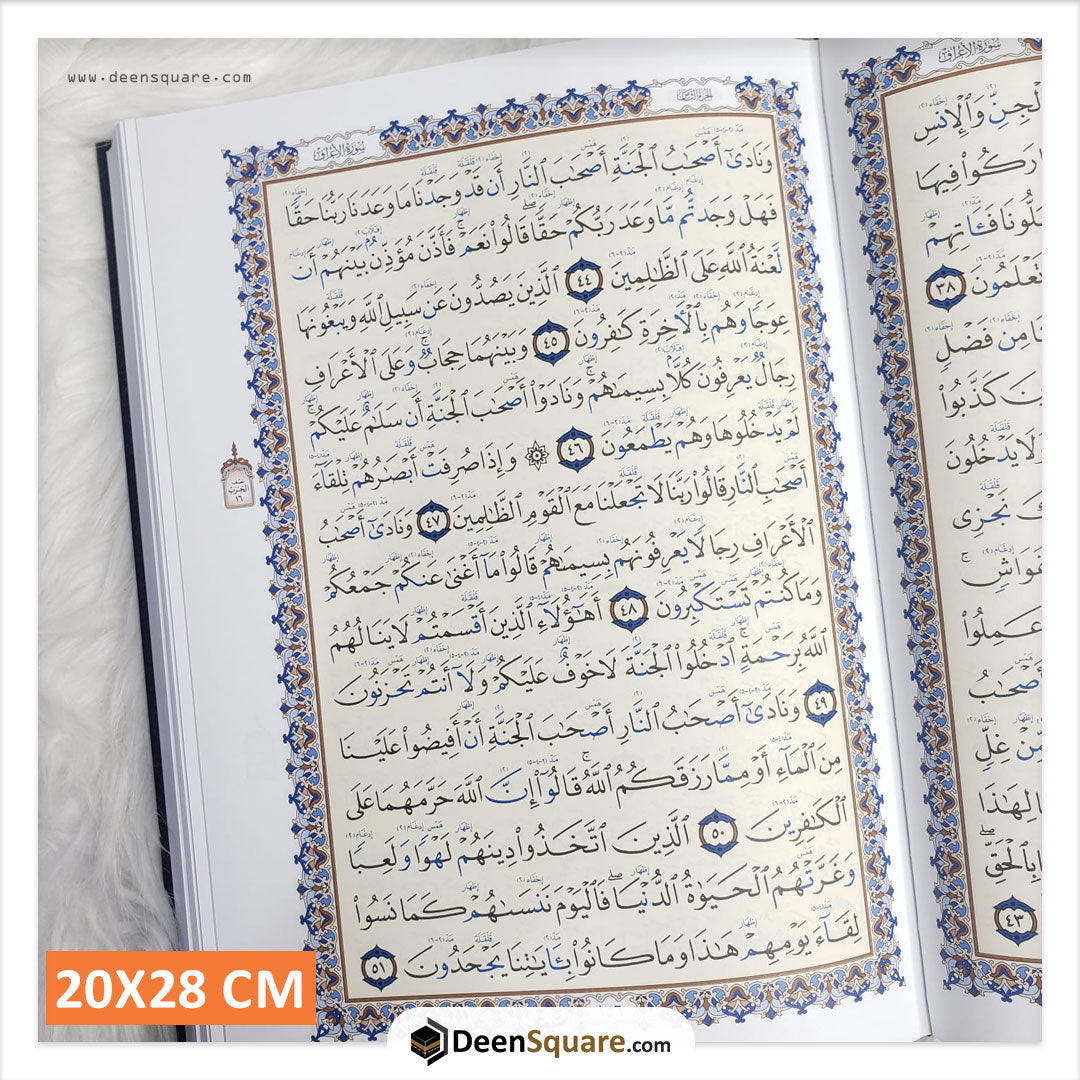 www.deensquare.com
سُورَةُ الأَعْرَافِ
الجزء الثامن
وَنَادَىٰٓ أَصْحَٰبُ ٱلْجَنَّةِ أَصْحَٰبَ ٱلنَّارِ أَن قَدْ وَجَدْنَا مَا وَعَدَنَا رَبُّنَا حَقًّا
فَهَلْ وَجَدتُّم مَّا وَعَدَ رَبُّكُمْ حَقًّا قَالُوا۟ نَعَمْ فَأَذَّنَ مُؤَذِّنٌۢ بَيْنَهُمْ أَن
لَّعْنَةُ ٱللَّهِ عَلَى ٱلظَّٰلِمِينَ ٤٤ ٱلَّذِينَ يَصُدُّونَ عَن سَبِيلِ ٱللَّهِ وَيَبْغُونَهَا
عِوَجًا وَهُم بِٱلْأَخِرَةِ كَٰفِرُونَ ٤٥ وَبَيْنَهُمَا حِجَابٌ وَعَلَى ٱلْأَعْرَافِ
رِجَالٌ يَعْرِفُونَ كُلًّۢا بِسِيمَىٰهُمْ وَنَادَوْا۟ أَصْحَٰبَ ٱلْجَنَّةِ أَن سَلَٰمٌ عَلَيْكُمْ
لَمْ يَدْخُلُوهَا وَهُمْ يَطْمَعُونَ ٤٦ ۞ وَإِذَا صُرِفَتْ أَبْصَٰرُهُمْ تِلْقَآءَ
أَصْحَٰبِ ٱلنَّارِ قَالُوا۟ رَبَّنَا لَا تَجْعَلْنَا مَعَ ٱلْقَوْمِ ٱلظَّٰلِمِينَ ٤٧ وَنَادَىٰٓ أَصْحَٰبُ
ٱلْأَعْرَافِ رِجَالًا يَعْرِفُونَهُم بِسِيمَىٰهُمْ قَالُوا۟ مَآ أَغْنَىٰ عَنكُمْ جَمْعُكُمْ
وَمَا كُنتُمْ تَسْتَكْبِرُونَ ٤٨ أَهَٰٓؤُلَآءِ ٱلَّذِينَ أَقْسَمْتُمْ لَا يَنَالُهُمُ
ٱللَّهُ بِرَحْمَةٍ ٱدْخُلُوا۟ ٱلْجَنَّةَ لَا خَوْفٌ عَلَيْكُمْ وَلَآ أَنتُمْ تَحْزَنُونَ
٤٩ وَنَادَىٰٓ أَصْحَٰبُ ٱلنَّارِ أَصْحَٰبَ ٱلْجَنَّةِ أَنْ أَفِيضُوا۟ عَلَيْنَا
مِنَ ٱلْمَآءِ أَوْ مِمَّا رَزَقَكُمُ ٱللَّهُ قَالُوٓا۟ إِنَّ ٱللَّهَ حَرَّمَهُمَا عَلَى
ٱلْكَٰفِرِينَ ٥٠ ٱلَّذِينَ ٱتَّخَذُوا۟ دِينَهُمْ لَهْوًا وَلَعِبًا
وَغَرَّتْهُمُ ٱلْحَيَوٰةُ ٱلدُّنْيَا فَٱلْيَوْمَ نَنسَىٰهُمْ كَمَا نَسُوا۟
لِقَآءَ يَوْمِهِمْ هَٰذَا وَمَا كَانُوا۟ بِـَٔايَٰتِنَا يَجْحَدُونَ ٥١
نصف
الحزب
١٦
سُورَةُ الأَعْرَافِ
ٱلْجِنِّ وَٱلْإِنسِ
ٱدَّارَكُوا۟ فِيهَا
أَضَلُّونَا فَـَٔاتِهِمْ
تَعْلَمُونَ ٣٨
مِن فَضْلٍ
كَذَّبُوا۟
وَلَا يَدْخُلُونَ
نَجْزِى
غَوَاشٍ
عَمِلُوا۟
أَصْحَٰبُ
مِّنْ غِلٍّ
لِهَٰذَا
بِٱلْحَقِّ
٤٣
20X28 CM
DeenSquare.com